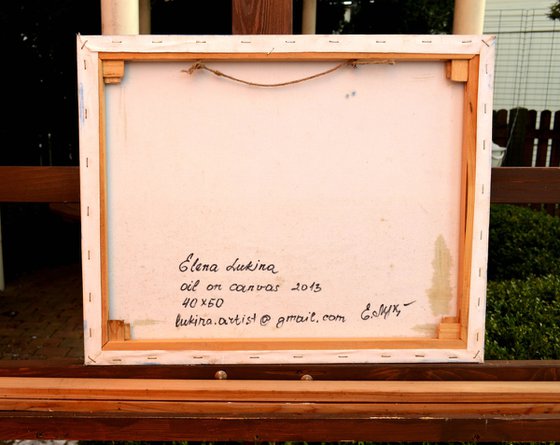 Elena Lukina
oil on canvas 2013
40x50
lukina.artist@gmail.com